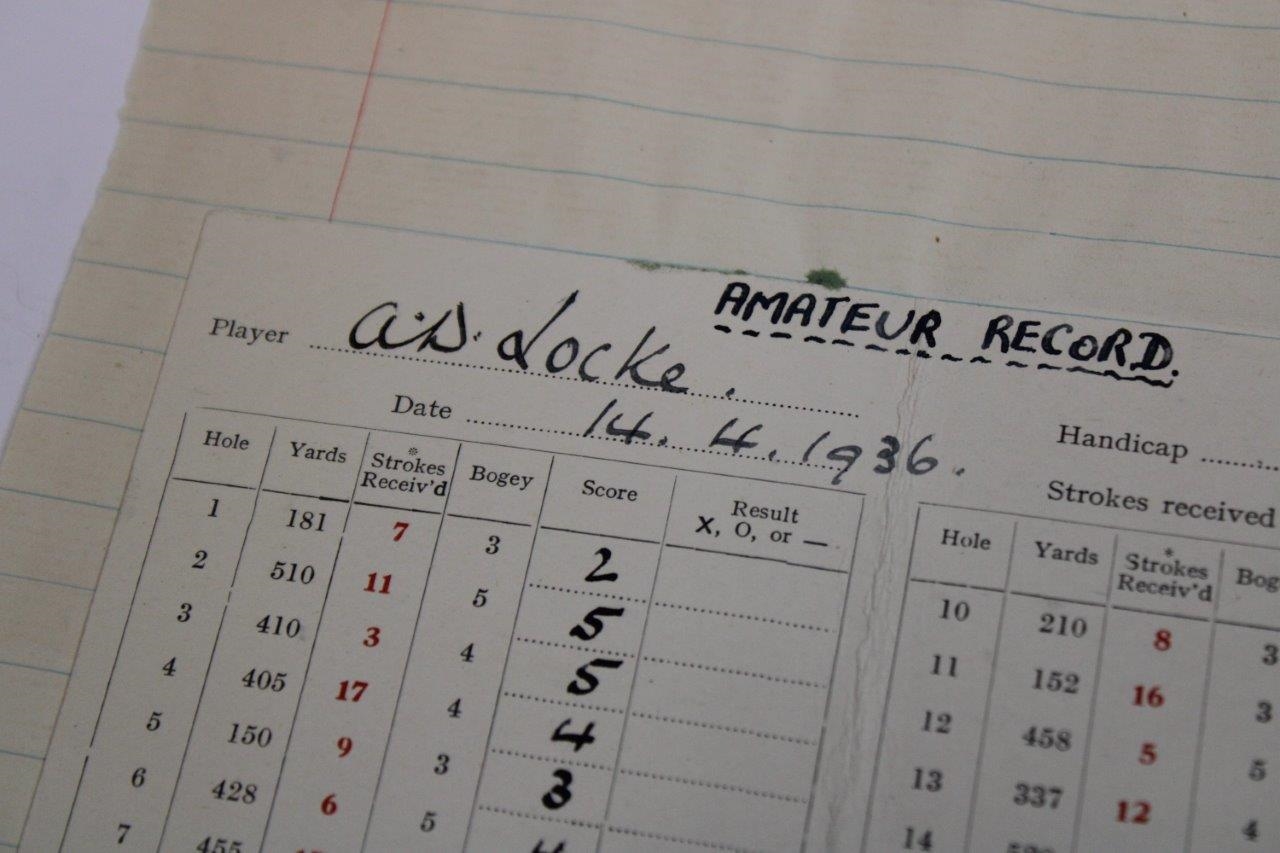 AMATEUR RECORD.
Player A.D. Locke.
Date 14. 4. 1936.
Handicap
Strokes received
Hole Yards *Strokes Receiv'd Bogey Score Result X, O, or —
1 181 7 3 2
2 510 11 5 5
3 410 3 4 5
4 405 17 4 4
5 150 9 3 3
6 428 6 5 4
7 455
Hole Yards *Strokes Receiv'd
10 210 8 3
11 152 16 3
12 458 5 5
13 337 12 4
14